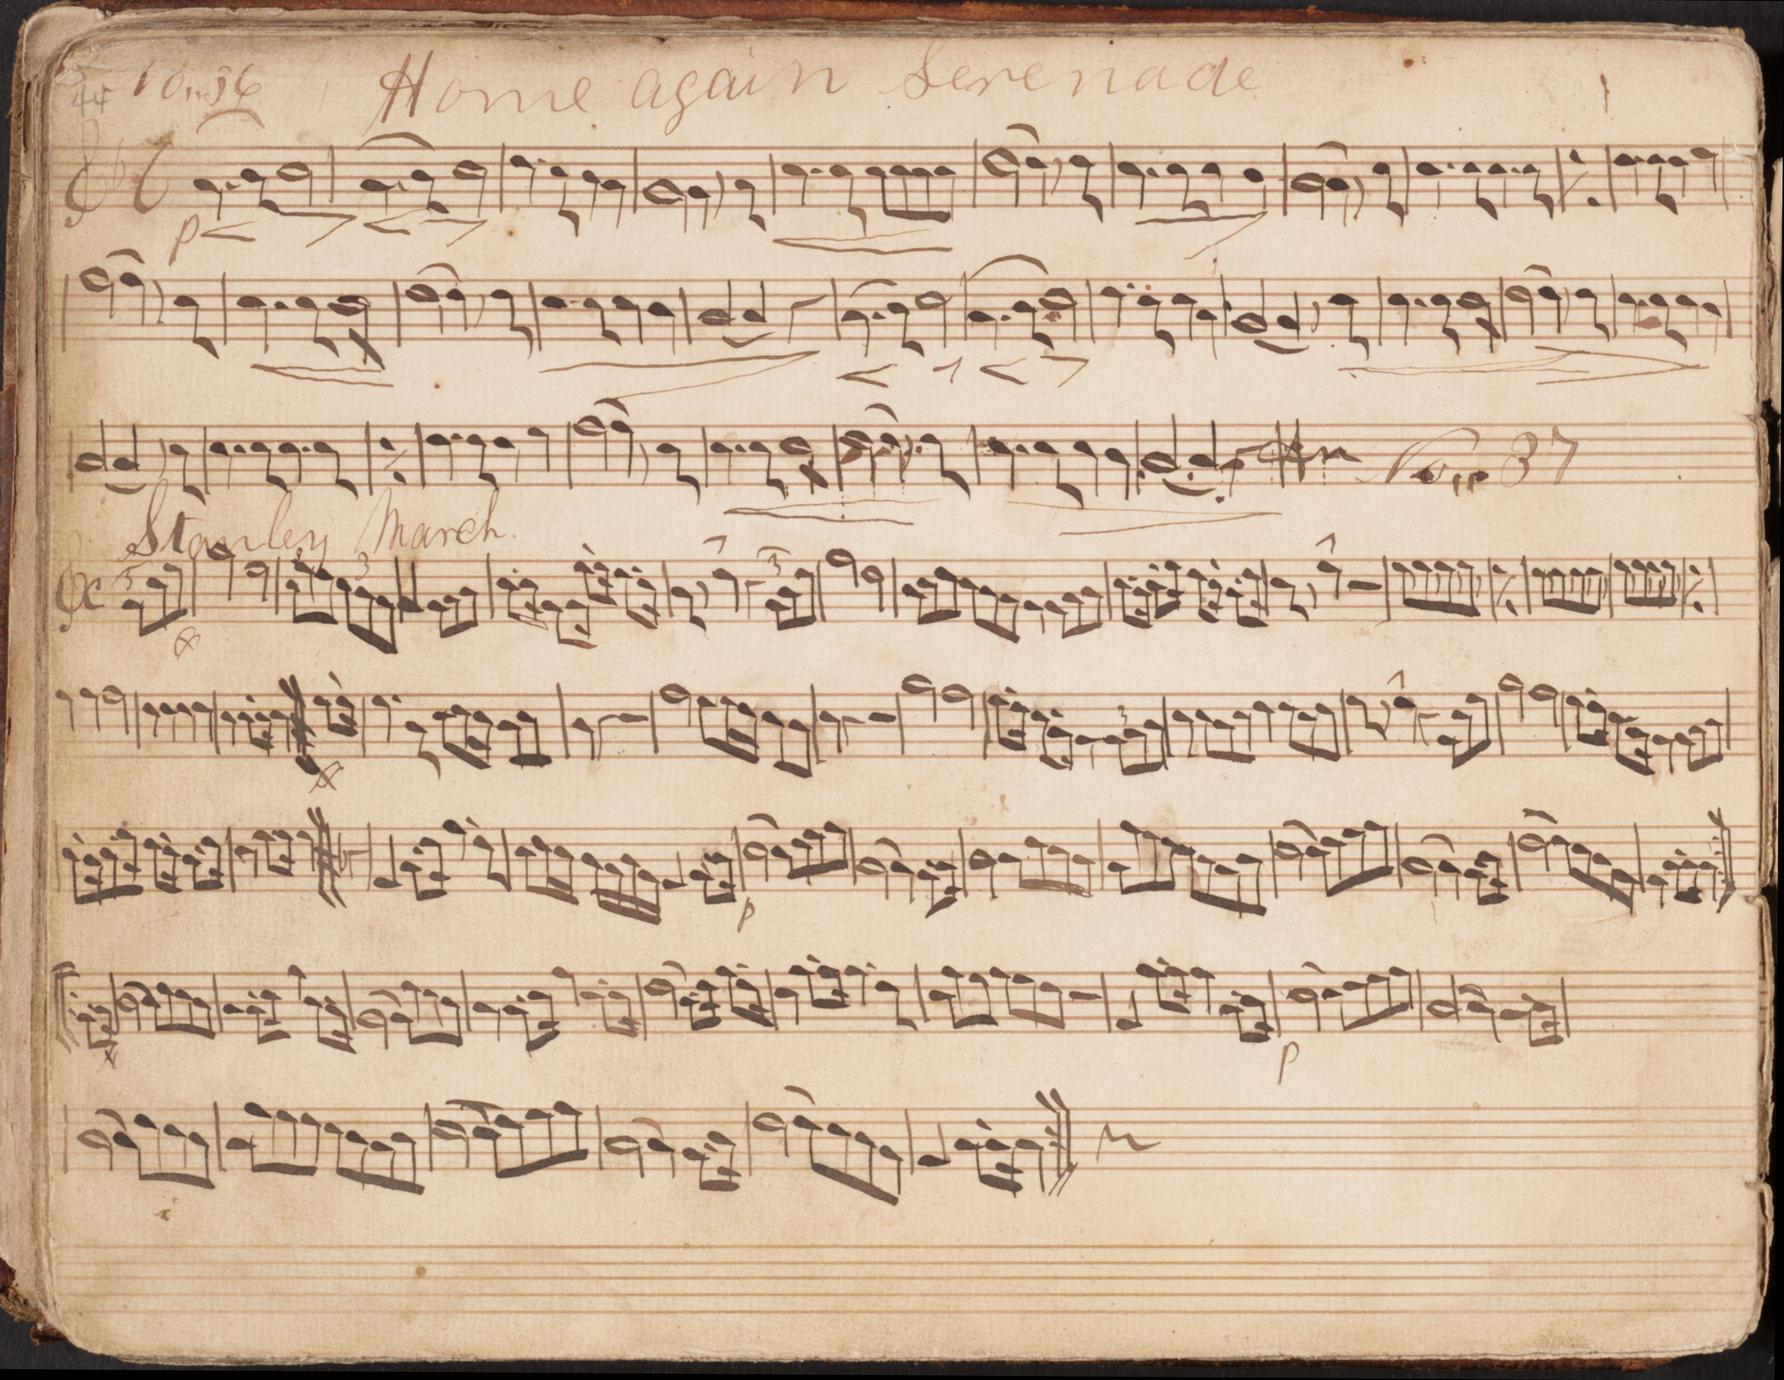 44 No. 36 Home again Serenade
p
No. 37
Stanley March.
3 3 3
3
p
p